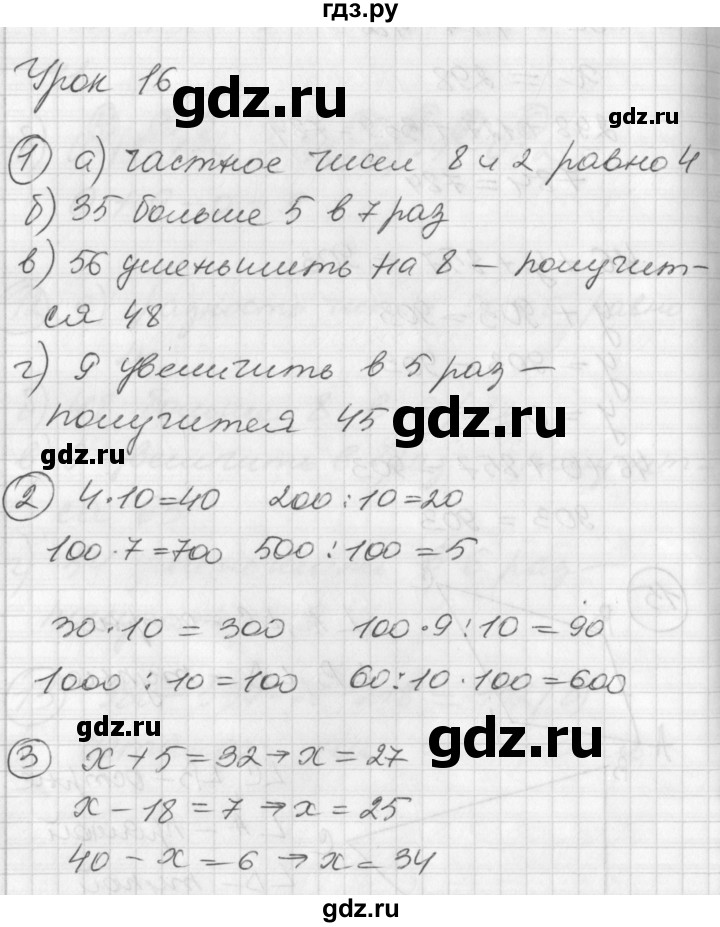 гдз.ру
Урок 16
gdz.ru
① а) частное чисел 8 и 2 равно 4
б) 35 больше 5 в 7 раз
в) 56 уменьшить на 8 – получит-
ся 48
г) 9 увеличить в 5 раз –
получится 45
gdz.ru
gdz.ru
② 4·10=40 200:10=20
100·7=700 500:100=5
30·10=300 100·9:10=90
1000:10=100 60:10·100=600
gdz.ru
gdz.ru
③ x+5=32→x=27
x-18=7→x=25
40-x=6→x=34
gdz.ru